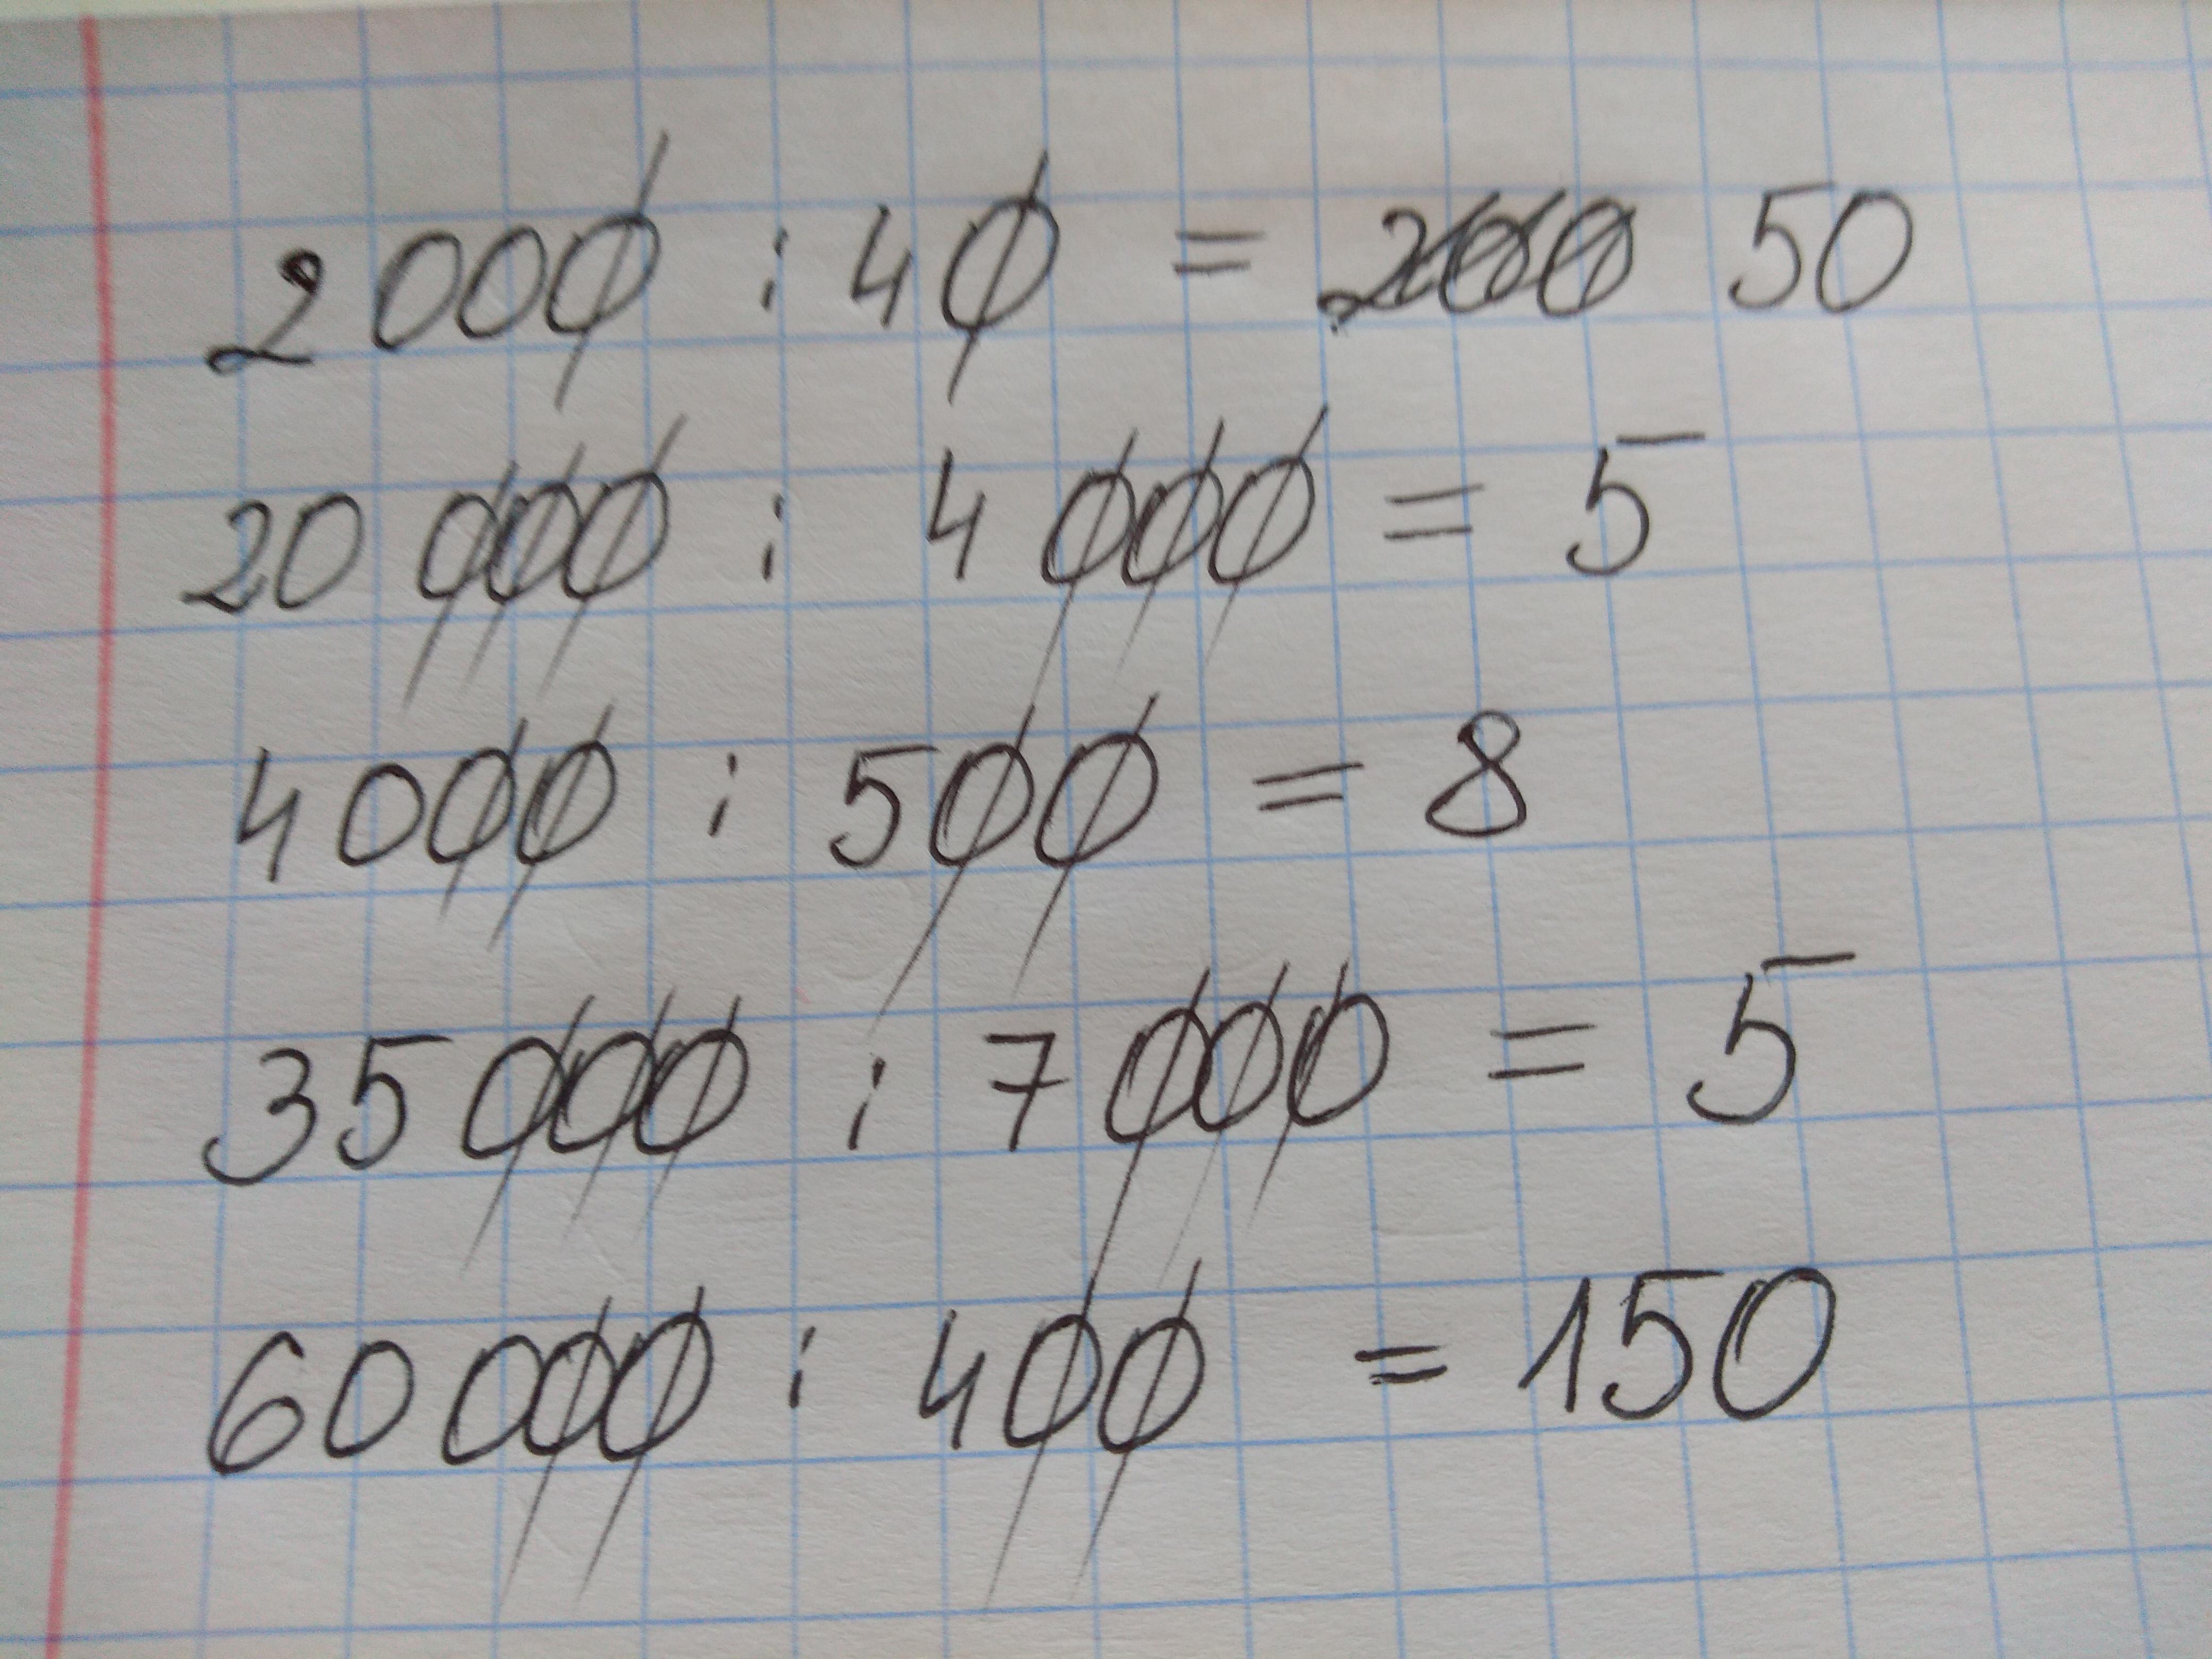 2 000 : 40 = 200 50
20 000 : 4 000 = 5
4000 : 500 = 8
35 000 : 7 000 = 5
60 000 : 400 = 150